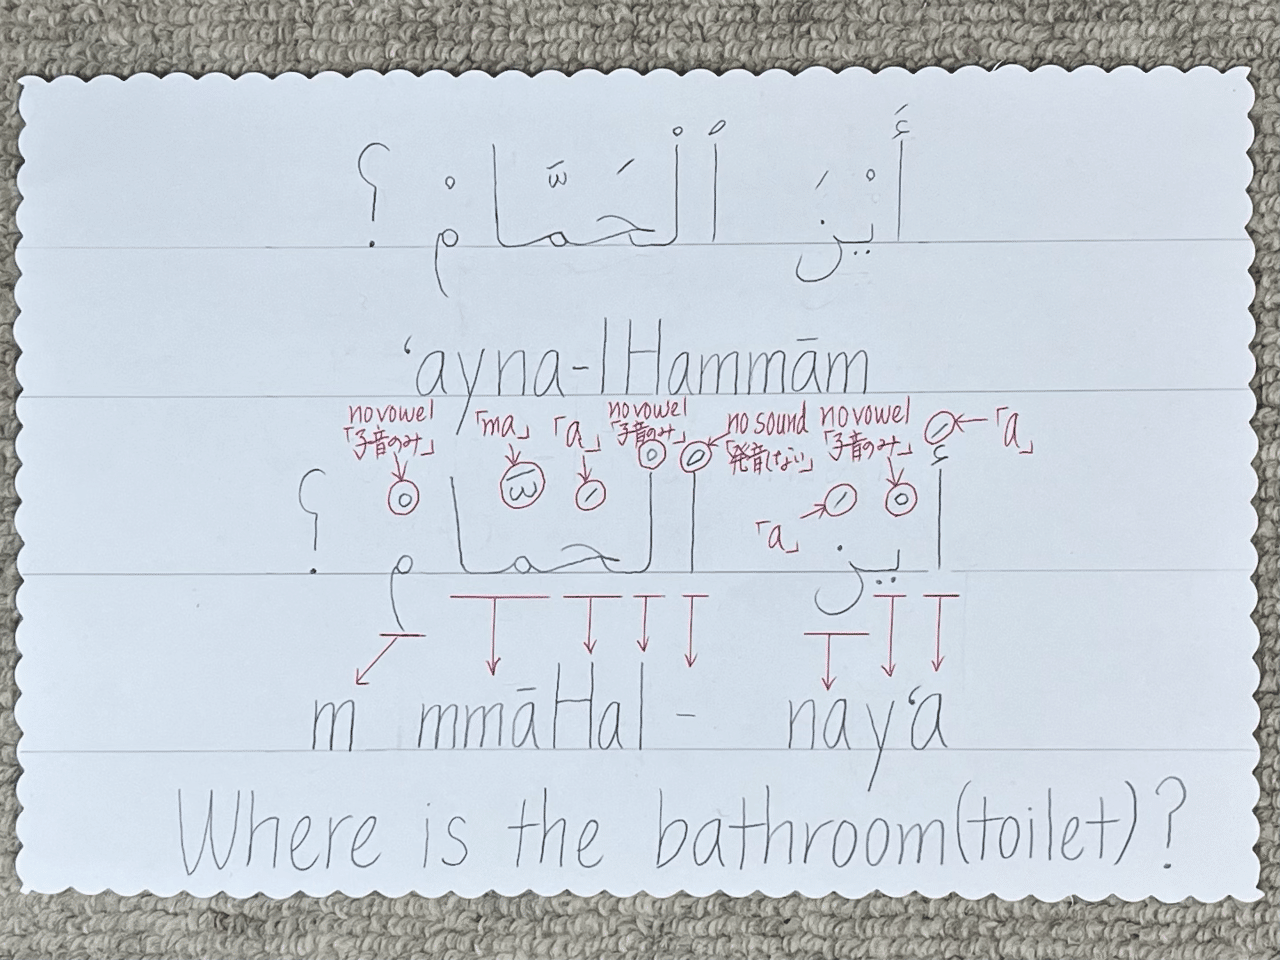 أَيْنَ ٱلْحَمَّامْ ؟
‘ayna-lHammām
no vowel 「ma」 「a」 no vowel no sound no vowel 「a」
「子音のみ」 「子音のみ」 「発音しない」 「子音のみ」
「a」
أَيْنَ ٱلْحَمَّامْ ؟
m mmāHal - nay‘a
Where is the bathroom(toilet)?